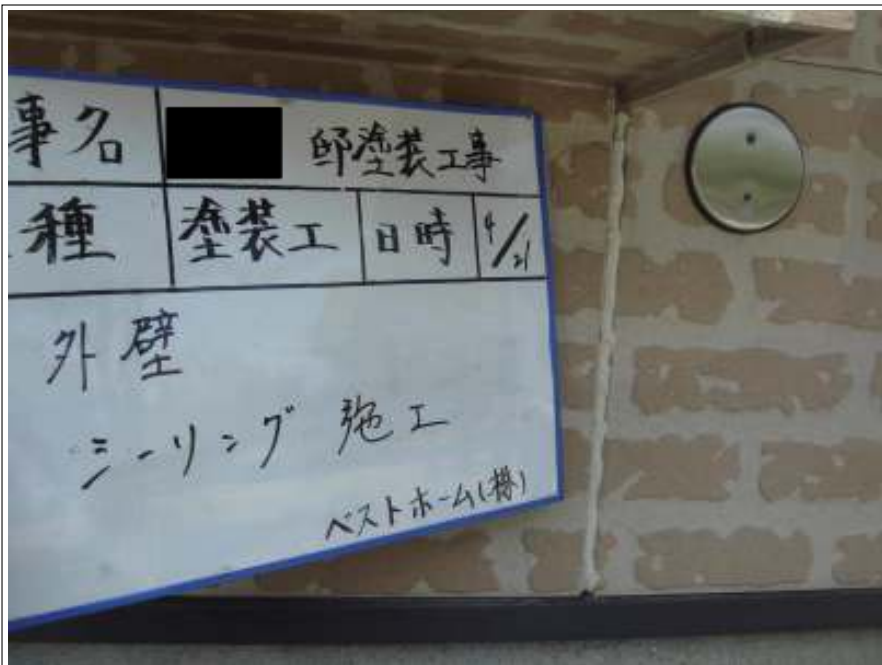 事名 邸塗装工事
種 塗装工 日時 4/21
外壁
シーリング 施工
ベストホーム(株)